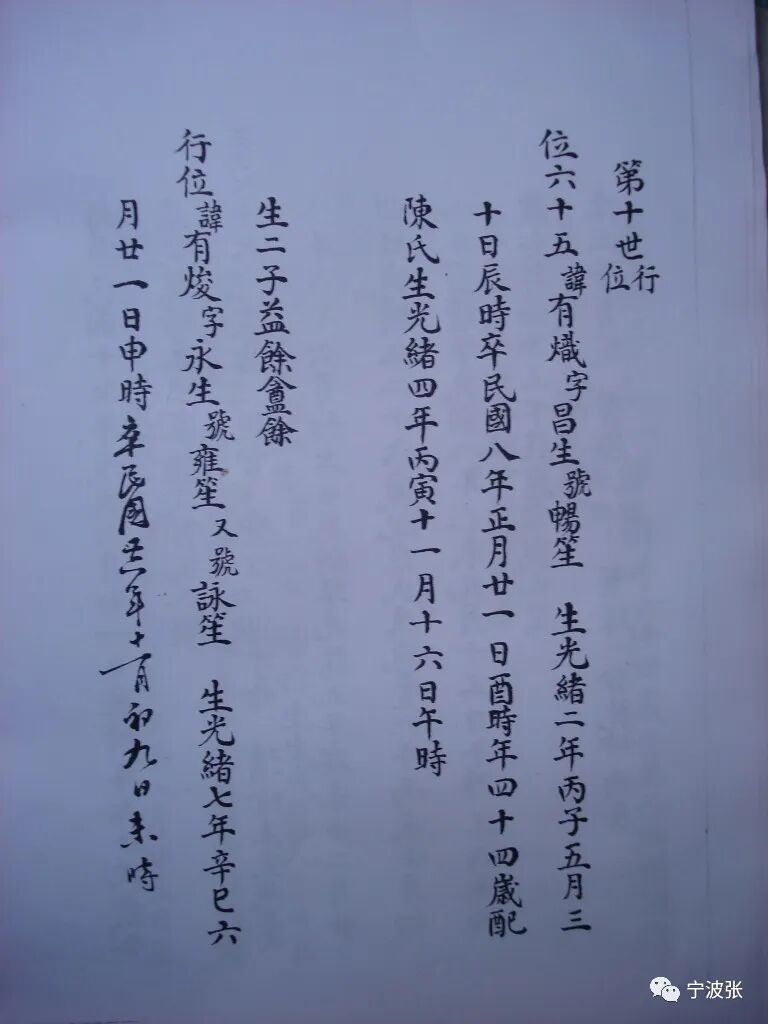 第十世行位
位六十五諱有熾字昌生號暢笙 生光緒二年丙子五月三
十日辰時卒民國八年正月廿一日酉時年四十四歲配
陳氏生光緒四年丙寅十一月十六日午時
生二子益餘盦餘
行位諱有焌字永生號雍笙又號詠笙 生光緒七年辛巳六
月廿一日申時卒民國 年十一月初九日未時
宁波张